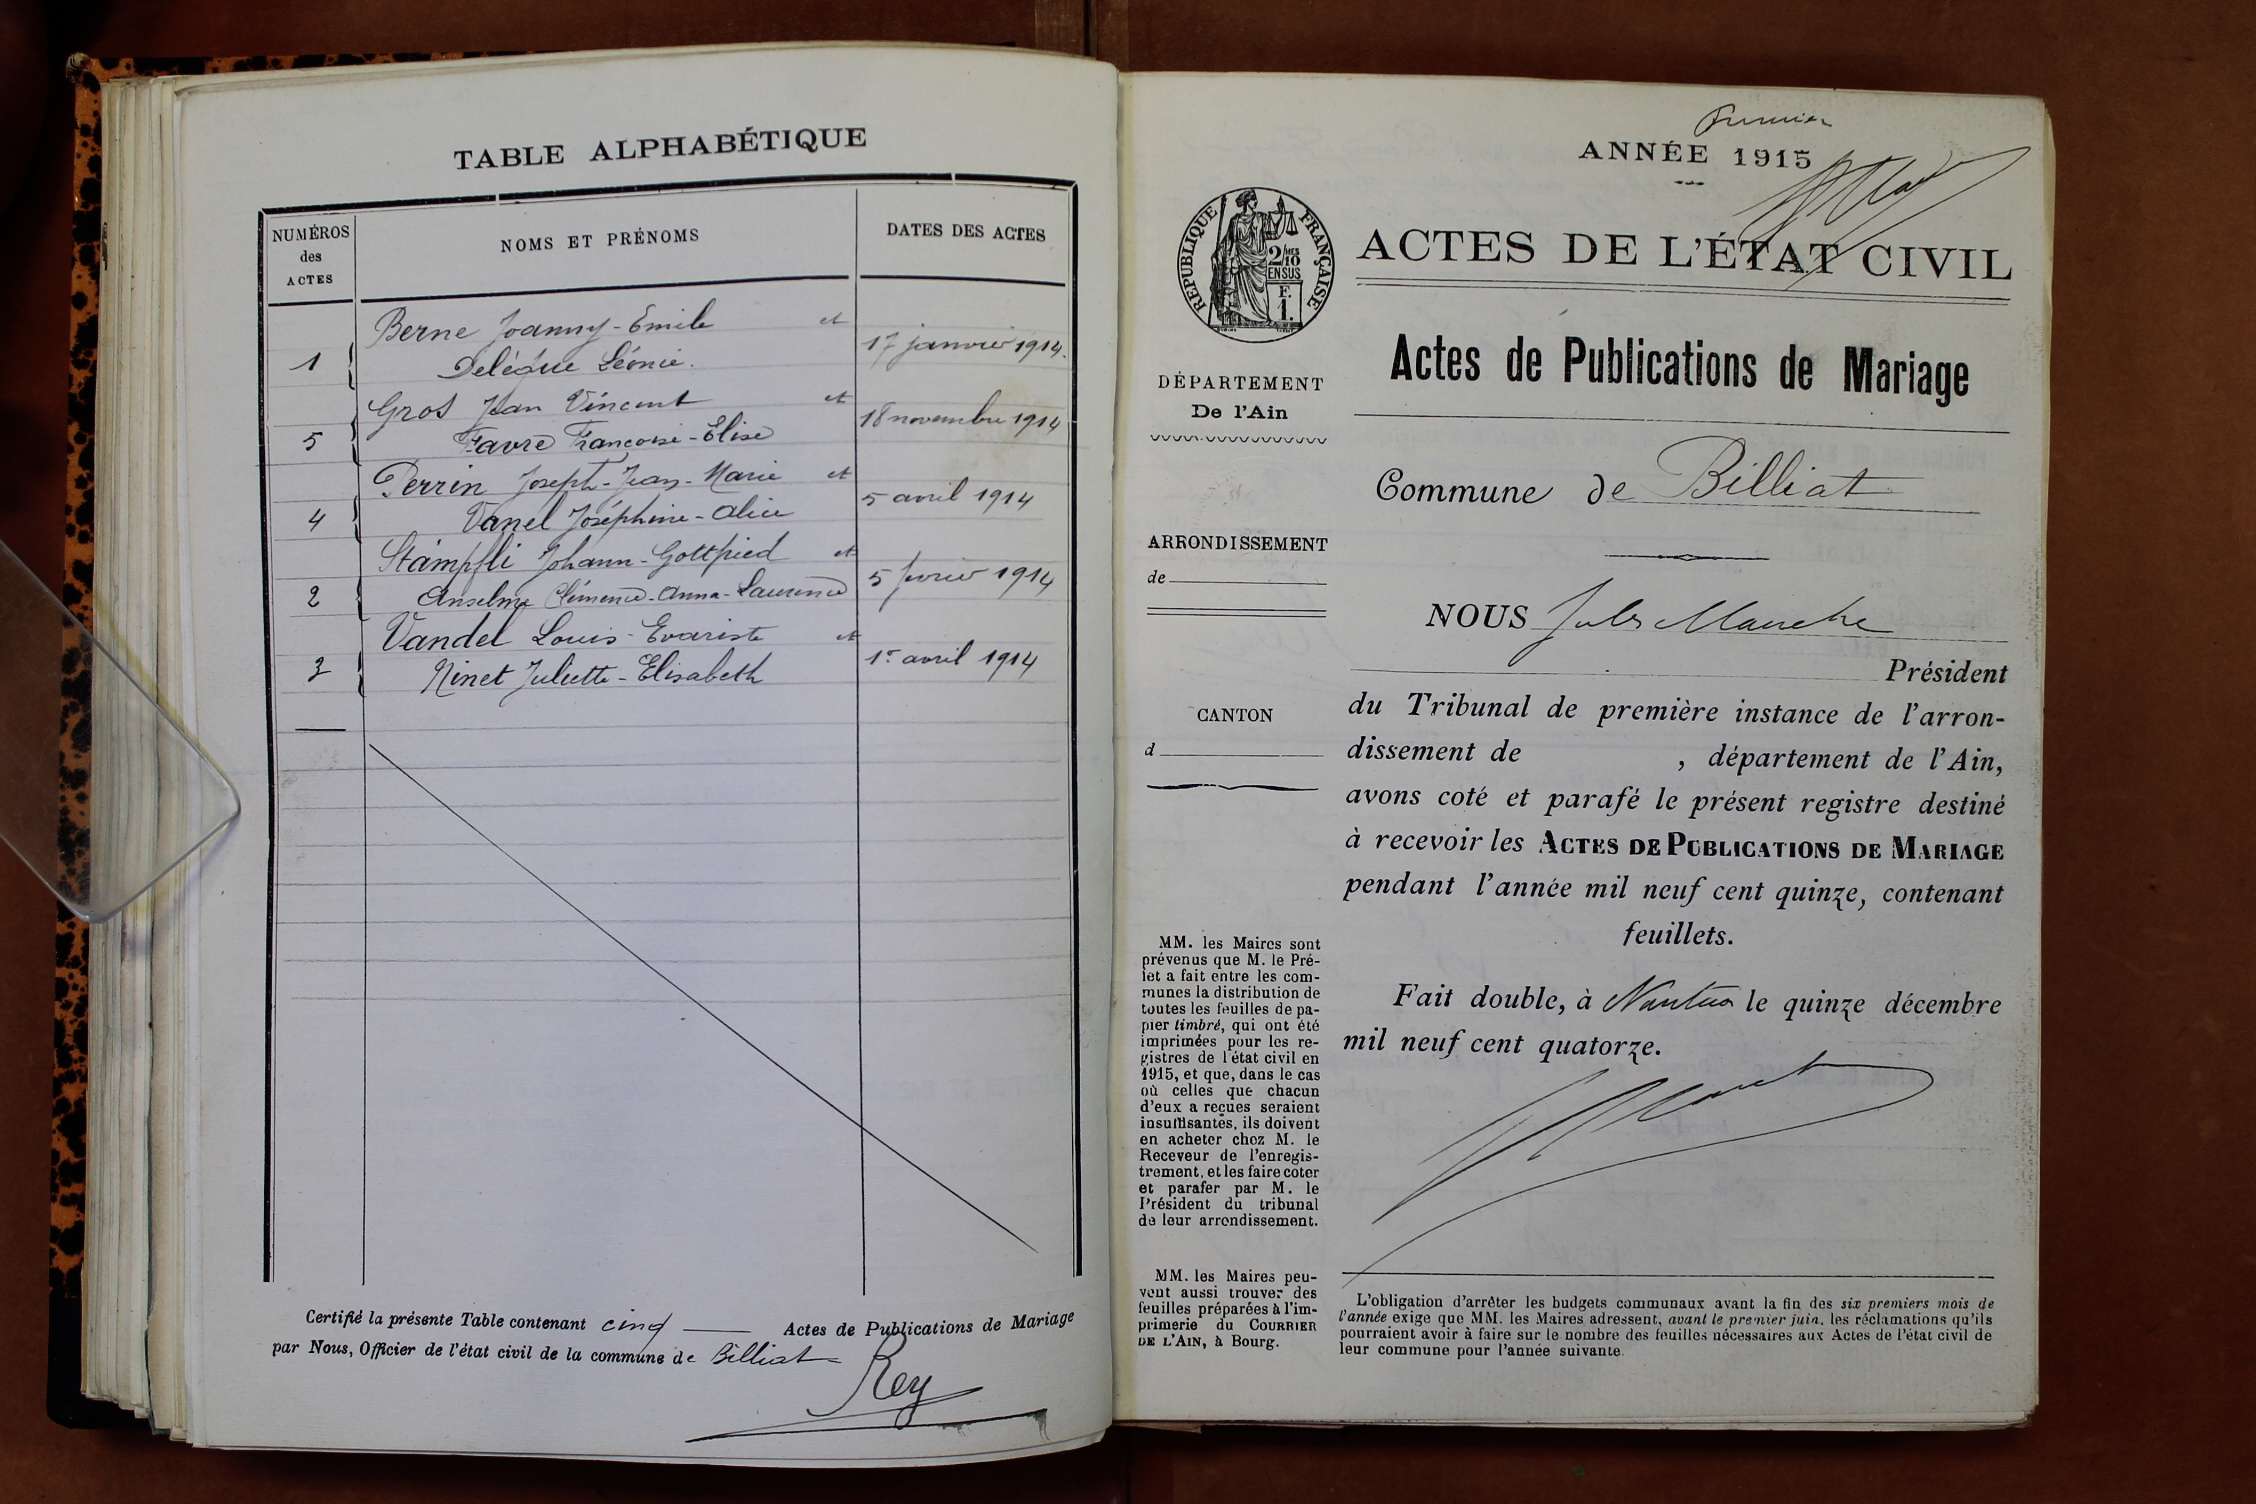 TABLE ALPHABÉTIQUE
NUMÉROS
des
ACTES
NOMS ET PRÉNOMS
DATES DES ACTES
Berne Joanny-Emile et
1 Delègue Léonie. 17 janvier 1914.
Gros Jean Vincent et
5 Favre Françoise-Elise 18 novembre 1914
Perrin Joseph-Jean-Marie et
4 Vanel Joséphine-Alice 5 avril 1914
Stämpfli Johann-Gottfried et
2 Anselme Clémence-Anna-Laurence 5 février 1914
Vandel Louis-Evariste et
3 Ninet Juliette-Elisabeth 1er avril 1914
Certifié la présente Table contenant cinq Actes de Publications de Mariage
par Nous, Officier de l'état civil de la commune de Billiat
Rey
Premier
ANNÉE 1915
RÉPUBLIQUE FRANÇAISE
2/10 MES
EN SUS
F.
1.
ACTES DE L'ÉTAT CIVIL
Actes de Publications de Mariage
DÉPARTEMENT
De l'Ain
Commune de Billiat
ARRONDISSEMENT
de
CANTON
d
NOUS Jules
Président
du Tribunal de première instance de l'arron-
dissement de , département de l'Ain,
avons coté et parafé le présent registre destiné
à recevoir les ACTES DE PUBLICATIONS DE MARIAGE
pendant l'année mil neuf cent quinze, contenant
feuillets.
Fait double, à Nantua le quinze décembre
mil neuf cent quatorze.
MM. les Maires sont
prévenus que M. le Pré-
fet a fait entre les com-
munes la distribution de
toutes les feuilles de pa-
pier timbré, qui ont été
imprimées pour les re-
gistres de l'état civil en
1915, et que, dans le cas
où celles que chacun
d'eux a reçues seraient
insuffisantes, ils doivent
en acheter chez M. le
Receveur de l'enregis-
trement, et les faire coter
et parafer par M. le
Président du tribunal
de leur arrondissement.
MM. les Maires peu-
vent aussi trouver des
feuilles préparées à l'im-
primerie du COURRIER
DE L'AIN, à Bourg.
L'obligation d'arrêter les budgets communaux avant la fin des six premiers mois de
l'année exige que MM. les Maires adressent, avant le premier juin, les réclamations qu'ils
pourraient avoir à faire sur le nombre des feuilles nécessaires aux Actes de l'état civil de
leur commune pour l'année suivante.